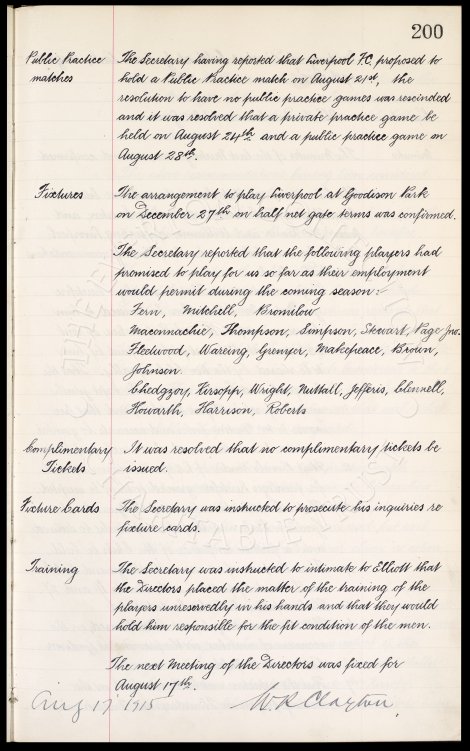 200
Public Practice
matches
The Secretary having reported that Liverpool F.C. proposed to
hold a Public Practice match on August 21st, the
resolution to have no public practice games was rescinded
and it was resolved that a private practice game be
held on August 24th and a public practice game on
August 28th.
Fixtures
The arrangement to play Liverpool at Goodison Park
on December 27th on half net gate terms was confirmed.
The Secretary reported that the following players had
promised to play for us so far as their employment
would permit during the coming season:
Fern, Mitchell, Bromilow
Maconnachie, Thompson, Simpson, Stewart, Page Jno.
Fleetwood, Wareing, Grenyer, Makepeace, Brown,
Johnson
Chedgzoy, Kirsopp, Wright, Nuttall, Jefferis, Clennell,
Howarth, Harrison, Roberts
Complimentary
Tickets
It was resolved that no complimentary tickets be
issued.
Fixture Cards
The Secretary was instructed to prosecute his inquiries re
fixture cards.
Training
The Secretary was instructed to intimate to Elliott that
the Directors placed the matter of the training of the
players unreservedly in his hands and that they would
hold him responsible for the fit condition of the men.
The next Meeting of the Directors was fixed for
August 17th.
Aug 17 1915 W. R. Clayton